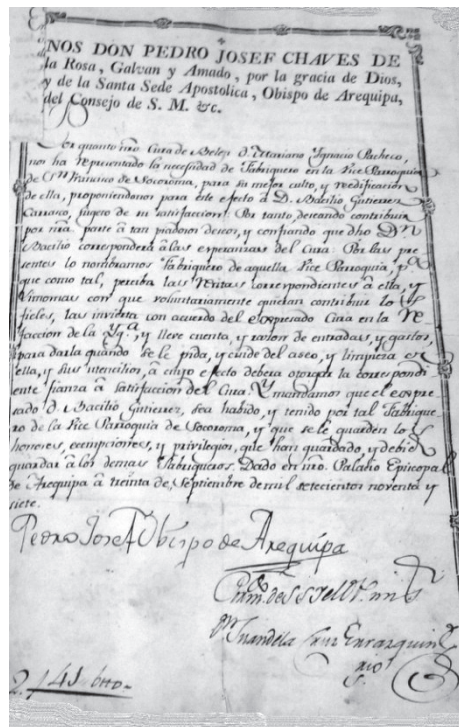 NOS DON PEDRO JOSEF CHAVES DE
la Rosa, Galvan y Amado, por la gracia de Dios,
y de la Santa Sede Apostolica, Obispo de Arequipa,
del Consejo de S. M. &c.
Por quanto nro. Cura de Belen D. Mariano Ignacio Pacheco,
nos ha representado la necesidad de Fabriquero en la Vice Parroquia
de Sn. Francisco de Socoroma, para su mejor culto, y reedificacion
de ella, proponiendonos para este efecto à D. Bacilio Gutierrez
sugeto de su satisfaccion: Por tanto, deseando contribuir
por nra. parte à tan piadosos deseos, y confiando que dho Dn.
Bacilio corresponderà à las esperanzas del Cura: Por las pre-
sentes lo nombramos Fabriquero de aquella Vice Parroquia, pa.
que como tal, perciba las Rentas correspondientes à ella, y
Limosnas con que voluntariamente quieran contribuir los
fieles, las invierta con acuerdo del expresado Cura en la re-
faccion de la Yga., y lleve cuenta, y razon de entradas, y gastos,
para darla quando se le pida, y cuide del aseo, y limpieza de
ella, y sus utencilios, à cuyo efecto deberà otorgar la correspondi-
ente fianza à satisfaccion del Cura. Y mandamos que el expre-
sado D. Bacilio Gutierrez, sea habido, y tenido por tal Fabrique-
ro de la Vice Parroquia de Socoroma, y que se le guarden los
honores, excempciones, y privilegios, que han guardado, y debido
guardar à los demas Fabriqueros. Dado en nro. Palacio Episcopal
de Arequipa à treinta de Septiembre de mil setecientos noventa y
siete.
Pedro Josef Obispo de Arequipa
Juan de la Cruz